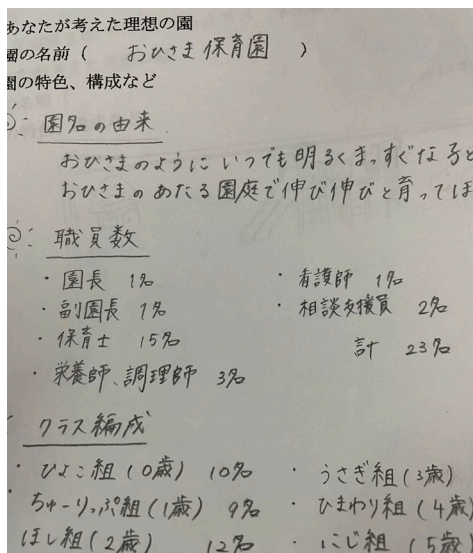 あなたが考えた理想の園
園の名前（ おひさま保育園 ）
園の特色、構成など
園名の由来
おひさまのように いつでも明るくまっすぐな子と
おひさまの あたる園庭で伸び伸びと育ってほ
職員数
・園長 1名
・副園長 1名
・保育士 15名
・栄養師、調理師 3名
・看護師 1名
・相談支援員 2名
計 23名
クラス編成
・ひよこ組(0歳) 10名
・ちゅーりっぷ組(1歳) 9名
ほし組(2歳) 12名
・うさぎ組(3歳)
・ひまわり組(4歳)
・にじ組(5歳